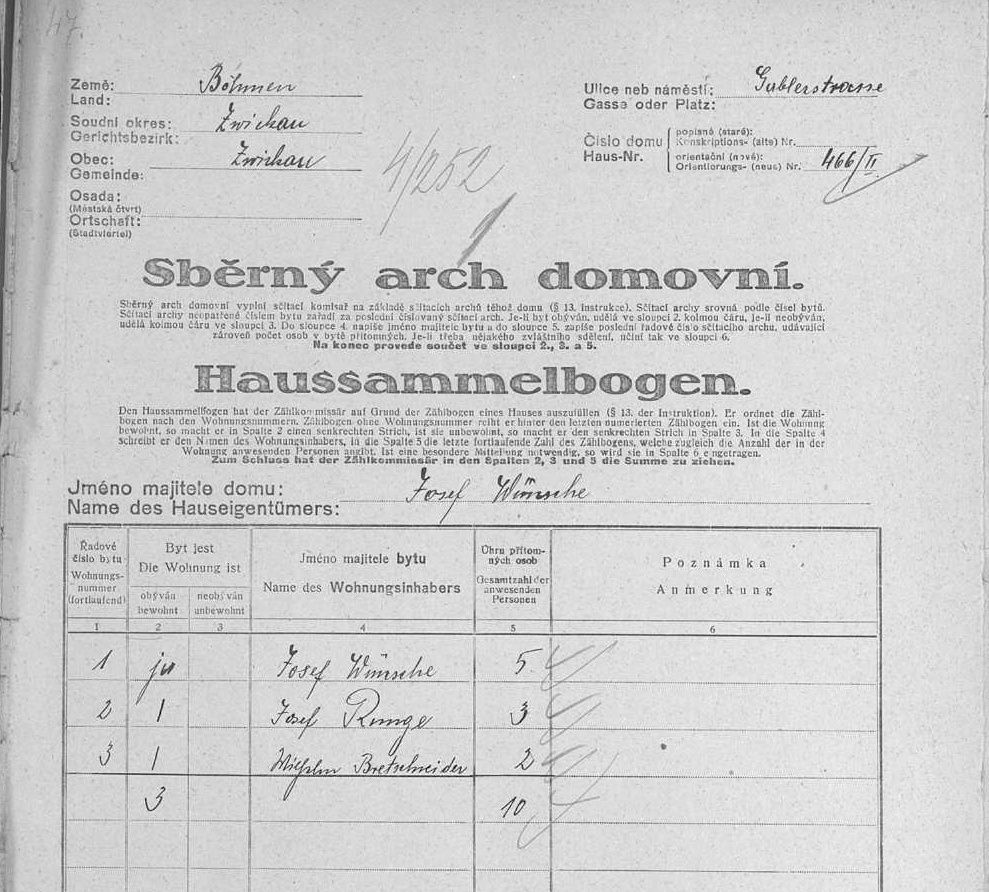 47.
Země: Böhmen
Land:
Soudní okres: Zwickau
Gerichtsbezirk:
Obec: Zwickau
Gemeinde:
Osada:
(Městská čtvrť)
Ortschaft:
(Stadtviertel)
4/252
1
Ulice neb náměstí: Gablerstrasse
Gasse oder Platz:
Číslo domu
Haus-Nr.
popisné (staré):
Konskriptions- (alte) Nr.
orientační (nové):
Orientierungs- (neue) Nr. 466/II
Sběrný arch domovní.
Sběrný arch domovní vyplní sčítací komisař na základě sčítacích archů téhož domu (§ 13. instrukce). Sčítací archy srovná podle čísel bytů.
Sčítací archy neopatřené číslem bytu zařadí za poslední číslovaný sčítací arch. Je-li byt obýván, udělá ve sloupci 2. kolmou čáru, je-li neobýván,
udělá kolmou čáru ve sloupci 3. Do sloupce 4. napíše jméno majitele bytu a do sloupce 5. zapíše poslední řadové číslo sčítacího archu, udávající
zároveň počet osob v bytě přítomných. Je-li třeba nějakého zvláštního sdělení, učiní tak ve sloupci 6.
Na konec provede součet ve sloupci 2., 3. a 5.
Haussammelbogen.
Den Haussammelbogen hat der Zählkommissär auf Grund der Zählbogen eines Hauses auszufüllen (§ 13. der Instruktion). Er ordnet die Zähl-
bogen nach den Wohnungsnummern. Zählbogen ohne Wohnungsnummer reiht er hinter den letzten numerierten Zählbogen ein. Ist die Wohnung
bewohnt, so macht er in Spalte 2 einen senkrechten Strich, ist sie unbewohnt, so macht er den senkrechten Strich in Spalte 3. In die Spalte 4
schreibt er den Namen des Wohnungsinhabers, in die Spalte 5 die letzte fortlaufende Zahl des Zählbogens, welche zugleich die Anzahl der in der
Wohnung anwesenden Personen angibt. Ist eine besondere Mitteilung notwendig, so wird sie in Spalte 6 eingetragen.
Zum Schluss hat der Zählkommissär in den Spalten 2, 3 und 5 die Summe zu ziehen.
Jméno majitele domu: Josef Wünsche
Name des Hauseigentümers:
Řadové
číslo bytu
Wohnungs-
nummer
(fortlaufend)
Byt jest
Die Wohnung ist
obýván
bewohnt
neobýván
unbewohnt
Jméno majitele bytu
Name des Wohnungsinhabers
Úhrn přítom-
ných osob
Gesamtzahl der
anwesenden
Personen
Poznámka
Anmerkung
1 2 3 4 5 6
1 ja Josef Wünsche 5
2 1 Josef Runge 3
3 1 Wilhelm Bretschneider 2
3 10